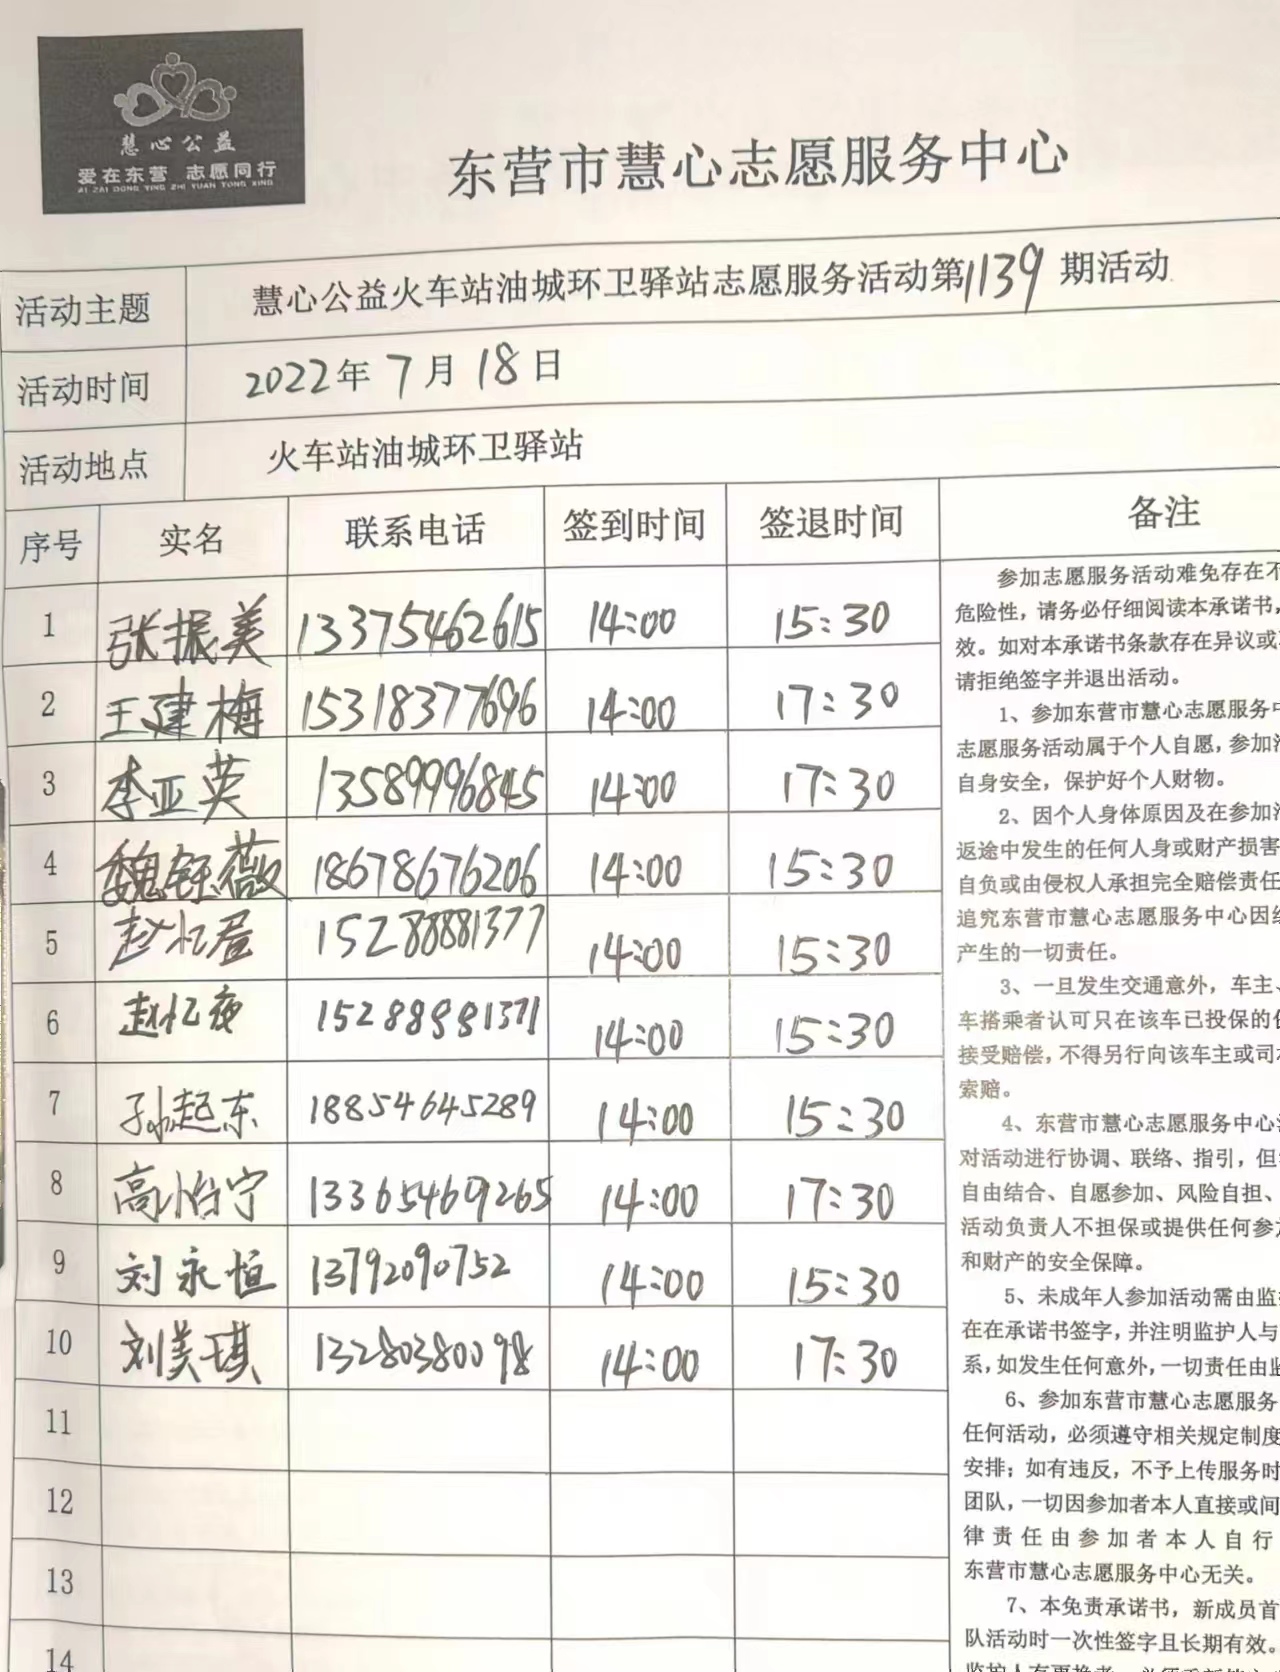 慧心公益
爱在东营 志愿同行
AI ZAI DONG YING ZHI YUAN TONG XING
东营市慧心志愿服务中心
活动主题 慧心公益火车站油城环卫驿站志愿服务活动第1139期活动
活动时间 2022年7月18日
活动地点 火车站油城环卫驿站
序号 实名 联系电话 签到时间 签退时间 备注
1 张振美 13375462615 14:00 15:30
2 王建梅 15318377696 14:00 17:30
3 李亚英 13589996845 14:00 17:30
4 魏钰薇 18678676206 14:00 15:30
5 赵忆君 15288881377 14:00 15:30
6 赵忆夜 15288881371 14:00 15:30
7 孙起东 18854645289 14:00 15:30
8 高怡宁 13365469265 14:00 17:30
9 刘永恒 13792090752 14:00 15:30
10 刘美琪 13280380098 14:00 17:30
11
12
13
14
参加志愿服务活动难免存在不
危险性，请务必仔细阅读本承诺书，
效。如对本承诺书条款存在异议或
请拒绝签字并退出活动。
1、参加东营市慧心志愿服务中
志愿服务活动属于个人自愿，参加活
自身安全，保护好个人财物。
2、因个人身体原因及在参加活
返途中发生的任何人身或财产损害
自负或由侵权人承担完全赔偿责任
追究东营市慧心志愿服务中心因组
产生的一切责任。
3、一旦发生交通意外，车主、
车搭乘者认可只在该车已投保的保
接受赔偿，不得另行向该车主或司机
索赔。
4、东营市慧心志愿服务中心
对活动进行协调、联络、指引，但
自由结合、自愿参加、风险自担、
活动负责人不担保或提供任何参加
和财产的安全保障。
5、未成年人参加活动需由监护
在在承诺书签字，并注明监护人与
系，如发生任何意外，一切责任由监
6、参加东营市慧心志愿服务
任何活动，必须遵守相关规定制度
安排；如有违反，不予上传服务时
团队，一切因参加者本人直接或间
律责任由参加者本人自行
东营市慧心志愿服务中心无关。
7、本免责承诺书，新成员首
队活动时一次性签字且长期有效。